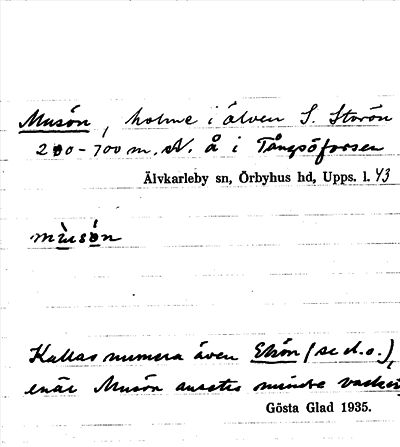 Musön, holme i älven S. Storön
200-700 m. N. å i Tångsöforsen
Älvkarleby sn, Örbyhus hd, Upps. l. 43
mùsón
Kallas numera även Ekön (se d. o.),
enär Musön ansetts mindre vacker
Gösta Glad 1935.